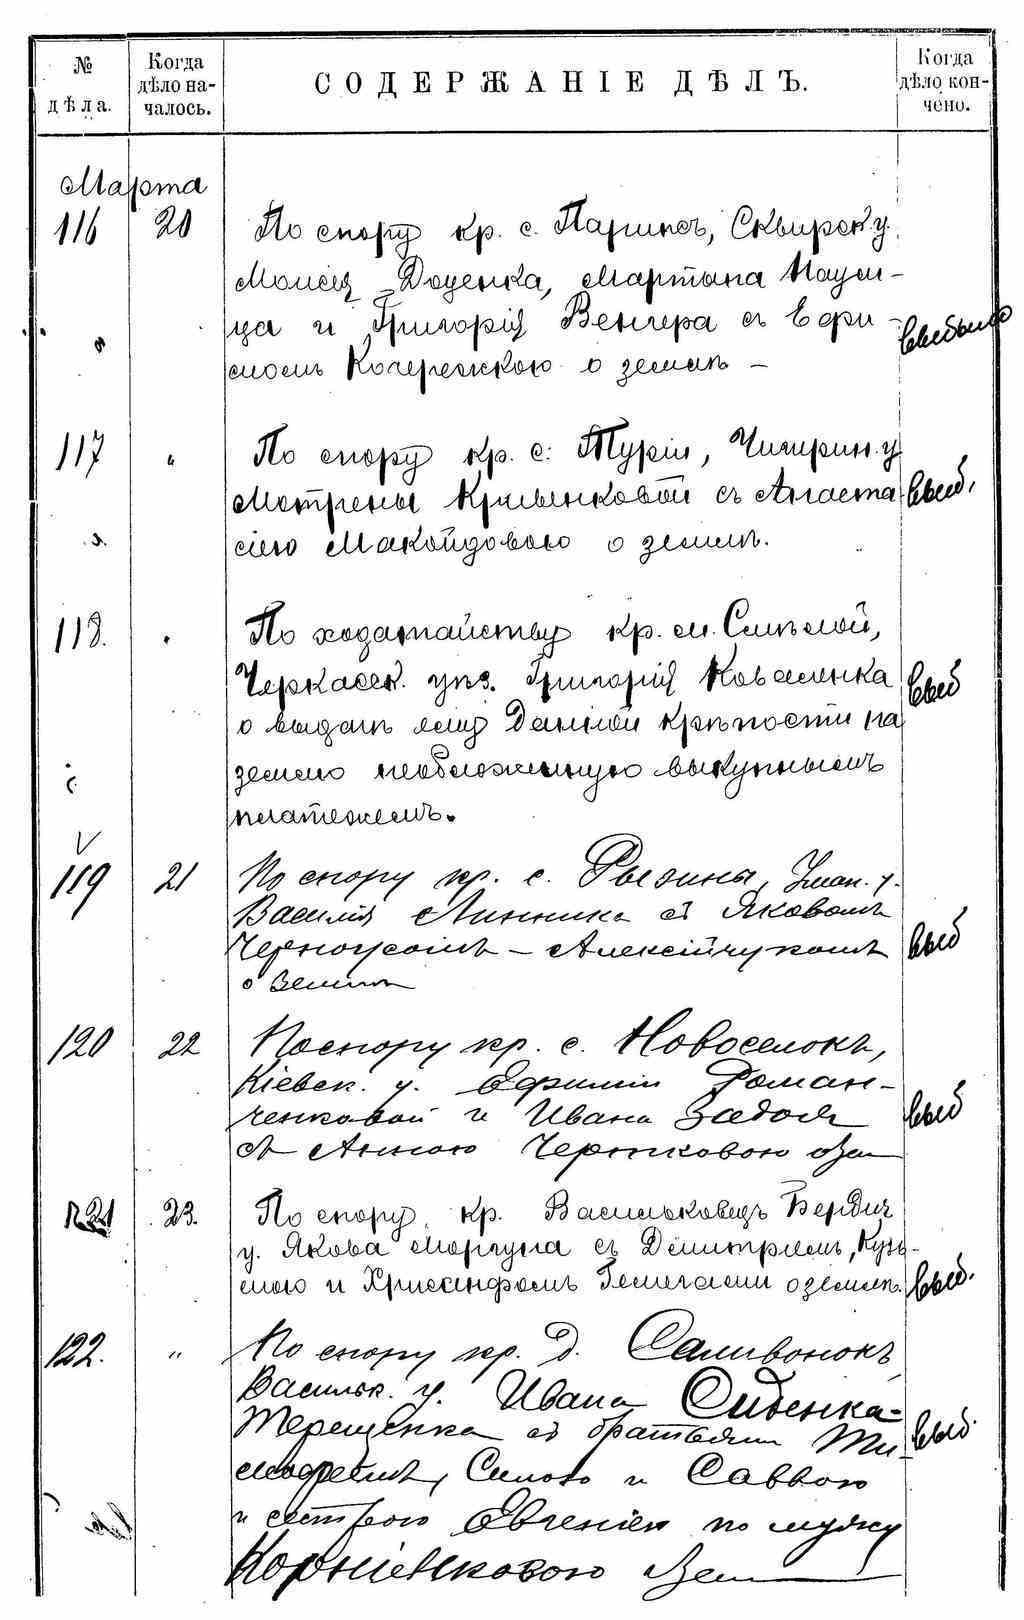 № дѣла.
Когда дѣло началось.
СОДЕРЖАНІЕ ДѢЛЪ.
Когда дѣло кончено.
Марта
116 20 По спору кр. с. Паринсъ, Сквирск. у.
Моисея Доценка, Мартына
и Григорія Венгера съ Ефи-
момъ Кочережкою о землѣ – выбыло
117 " По спору кр. с. Туріи, Чигирин. у
Мотрены Кривынковой съ Анаста- выб.
сіею Макойдовою о землѣ.
118. " По ходатайству кр. м. Смѣлой,
Черкасск. уѣз. Григорія Коваленка выб
о выдачѣ ему Данной крѣпости на
землю необложенную выкупнымъ
платежемъ.
119 21 По спору кр. с. Рызины, Уман. у.
Василія Линника съ Яковомъ
Черноусомъ – Алексійчукомъ выб
о землѣ
120 22 По спору кр. с. Новоселокъ,
Кіевск. у. Ефиміи Роман-
ченковой и Ивана Задои выб
съ Анною Чертковою о зем
121 23. По спору кр. Васильковецъ Бердич
у. Якова Моргуна съ Димитріемъ, Кузь-
мою и Хрисанфомъ о землѣ. выб.
122. " По спору кр. д. Саливонокъ
Васильк. у. Ивана Сиденка-
Терещенка съ братьями Ти- выб.
мофеемъ, Силою и Саввою
и сестрою Евгеніею по мужу
Корніенковою о зем